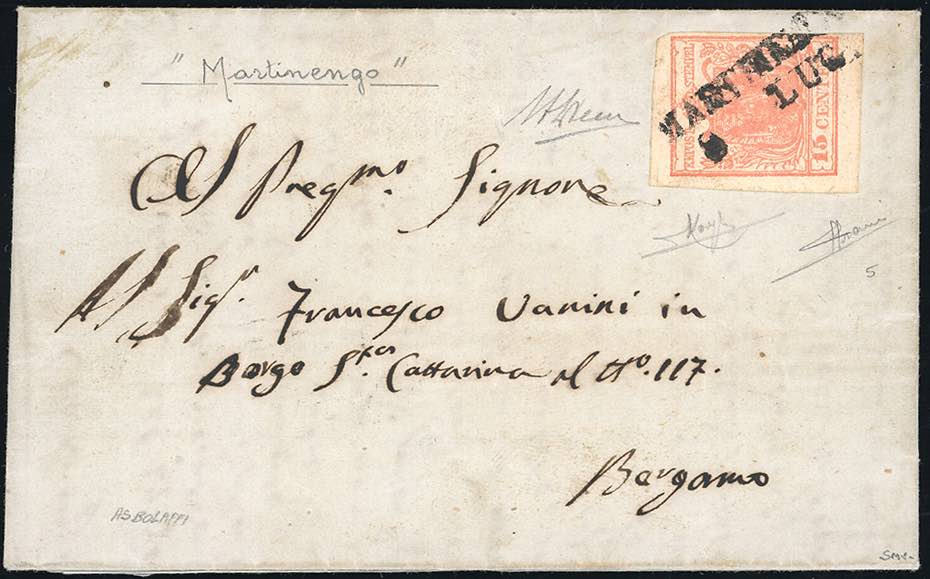 "Martinengo"
MARTINEN
LUG.
KKPOST-STEMPEL
15 CENTES
Al Pregmo. Signore
Al Sigr. Francesco Vanini in
Borgo Sta. Cattarina al No. 117.
Bergamo
ASBOLAFFI
5